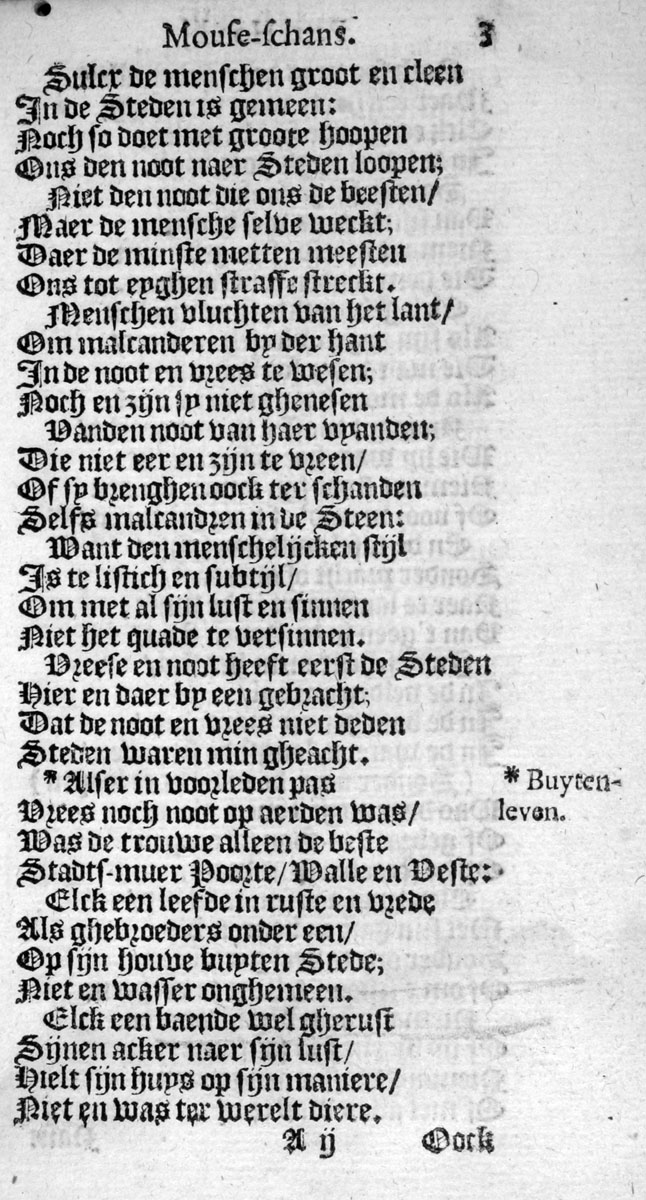 Mouse-schans. 3
Sulcx de menschen groot en cleen
In de Steden is gemeen:
Noch so doet met groote hoopen
Ons den noot naer Steden loopen;
Niet den noot die ons de beesten/
Maer de mensche selve weckt;
Daer de minste metten meesten
Ons tot eyghen straffe streckt.
Menschen vluchten van het lant/
Om malcanderen by der hant
In de noot en vrees te wesen;
Noch en zijn sy niet ghenesen
Vanden noot van haer vyanden;
Die niet eer en zijn te vreen/
Of sy brenghen oock ter schanden
Selfs malcandren in de Steen:
Want den menschelijcken stijl
Is te listich en subtijl/
Om met al sijn lust en sinnen
Niet het quade te versinnen.
Vreese en noot heeft eerst de Steden
Hier en daer by een gebracht;
Dat de noot en vrees niet deden
Steden waren min gheacht.
* Alser in voorleden pas
* Buyten-
Vrees noch noot op aerden was/
leven.
Was de trouwe alleen de beste
Stadts-muer Poorte/ Walle en Veste:
Elck een leefde in ruste en vrede
Als ghebroeders onder een/
Op sijn houve buyten Stede;
Niet en wasser onghemeen.
Elck een baende wel gherust
Sijnen acker naer sijn lust/
Hielt sijn huys op sijn maniere/
Niet en was ter werelt diere.
A ij Oock